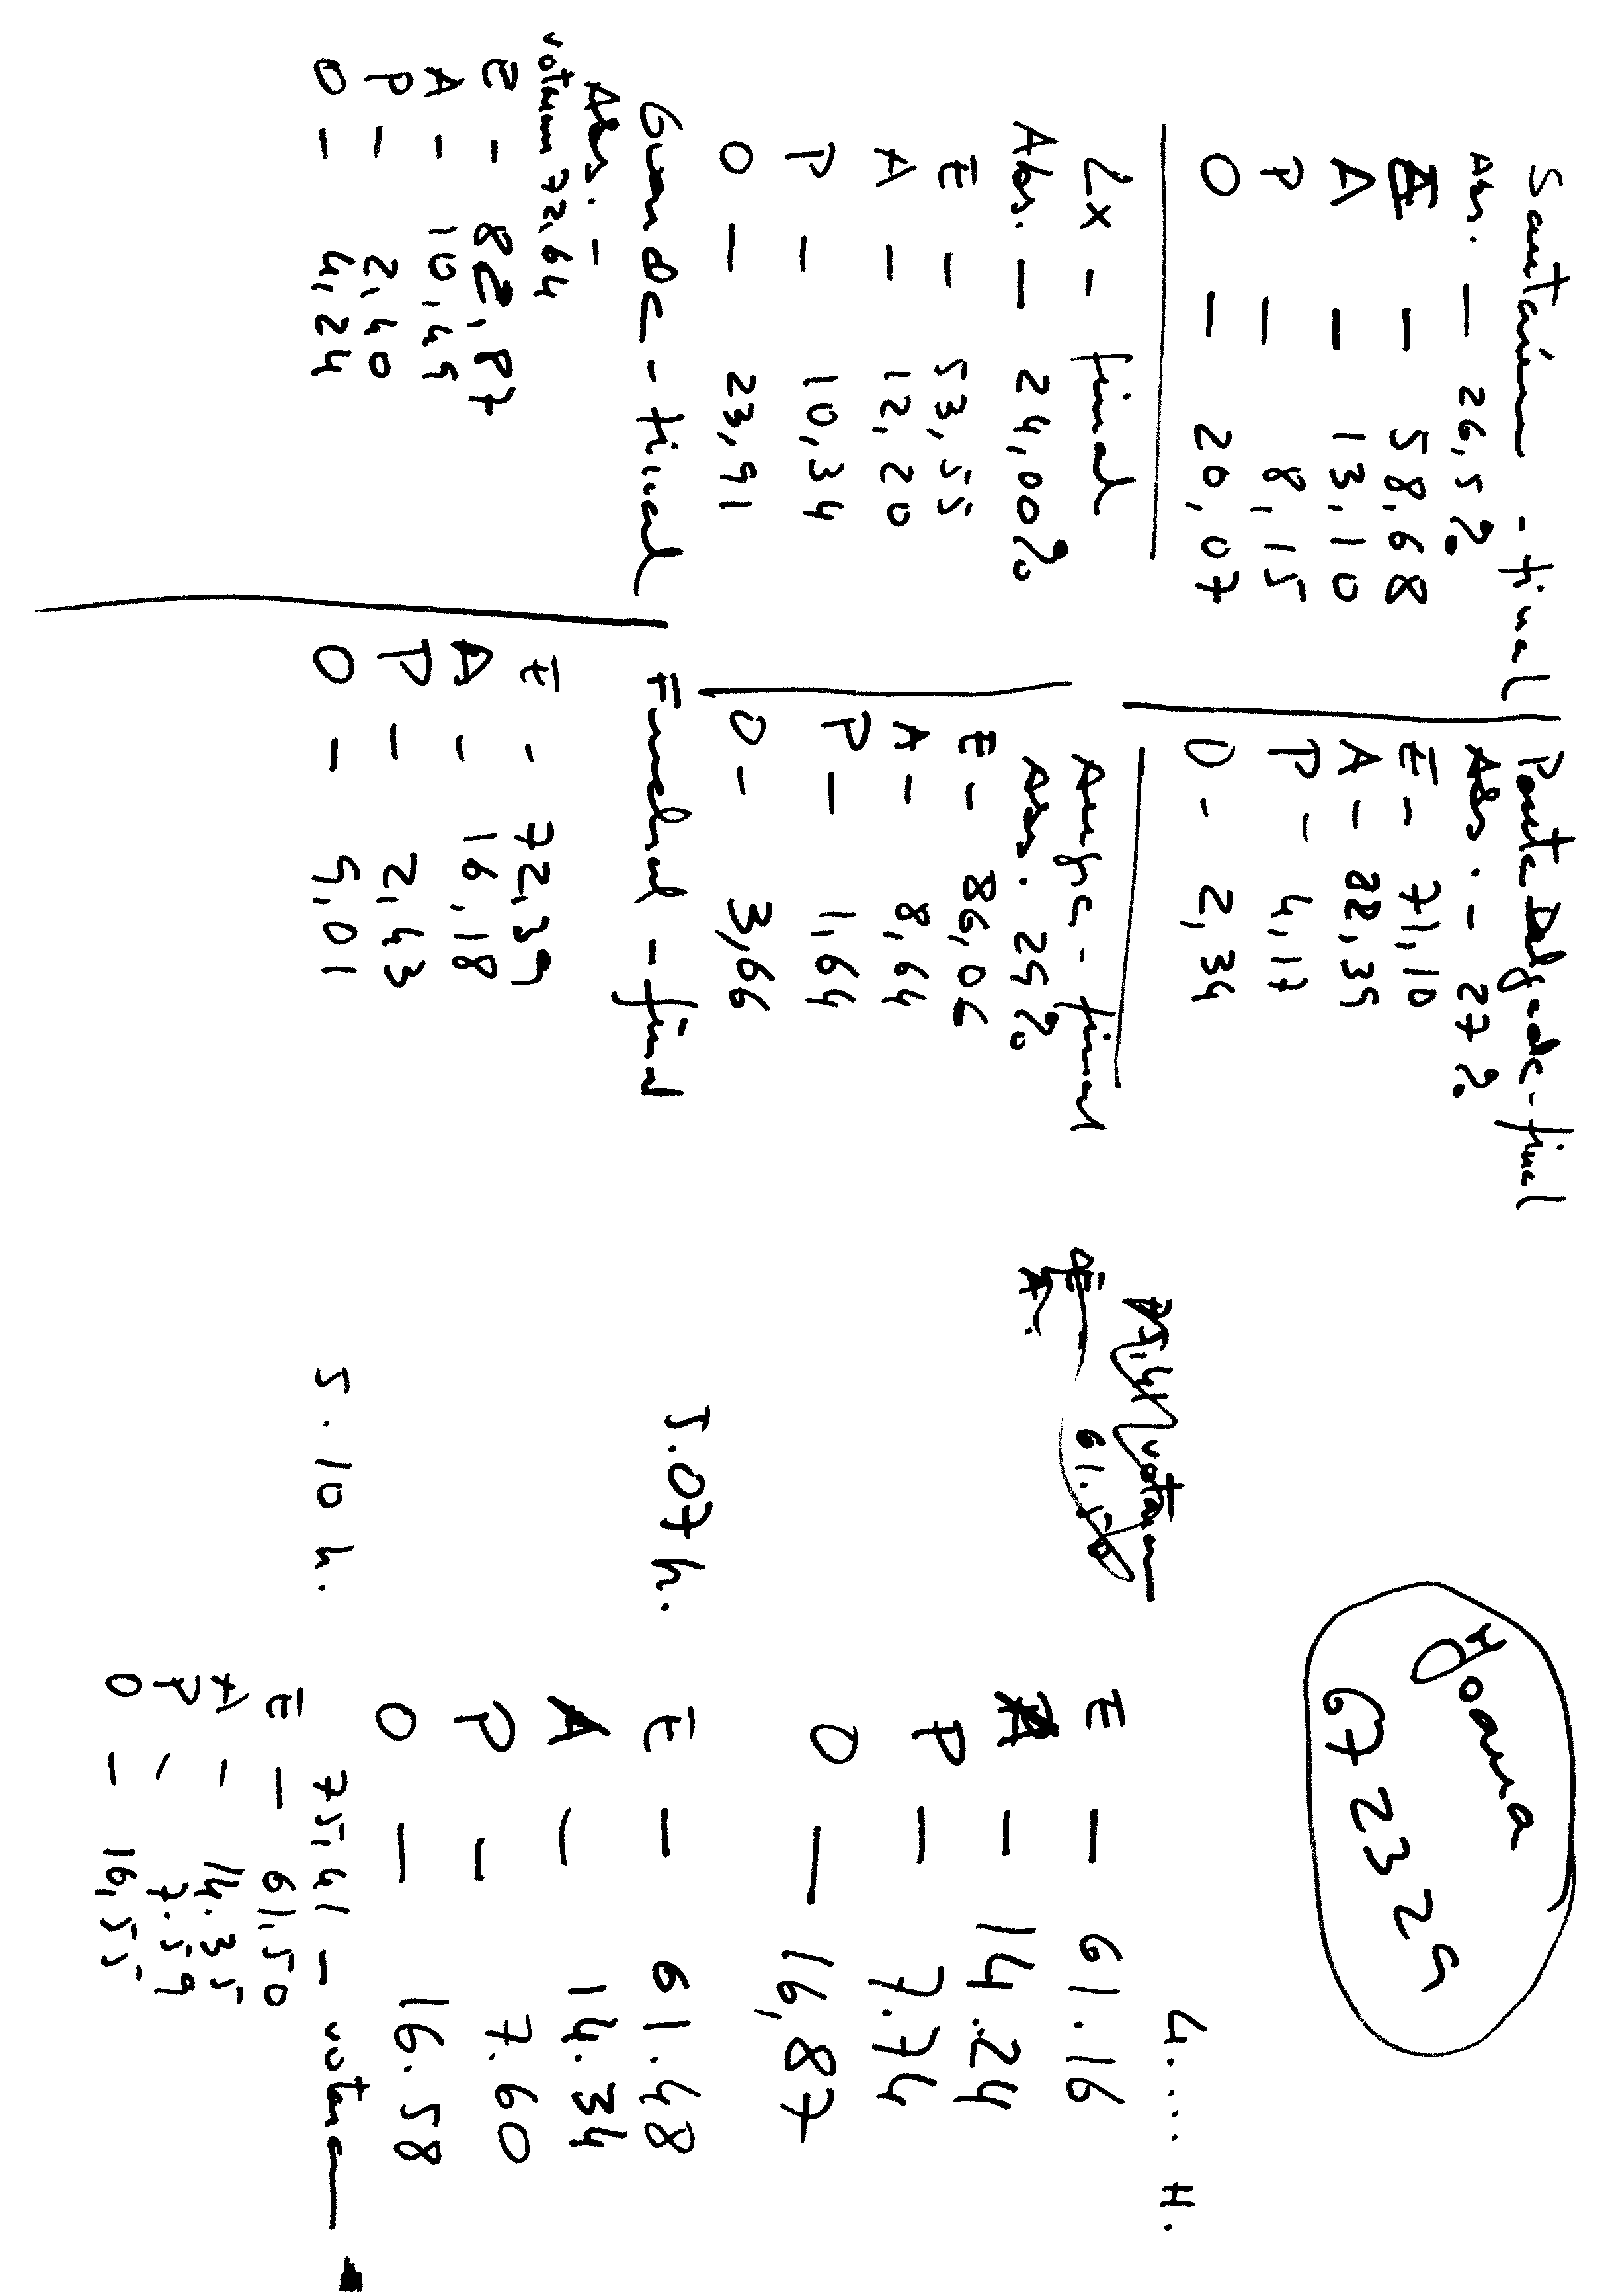 Santarém - final
Abs. — 26,5%
E — 58,68
A — 13,10
P — 8,15
O — 20,07
Lx - final
Abs. — 24,00%
E - 53,55
A - 12,20
P - 10,34
O - 23,91
Guarda - final
Abs. -
votaram 72,64
E - 82,87
A - 10,49
P - 2,40
O - 4,24
Ponta Delgada - final
Abs. - 27%
E - 71,10
A - 22,39
P - 4,17
O - 2,34
Angra - final
Abs. 25%
E - 86,06
A - 8,64
P - 1,64
O - 3,66
Funchal - final
E - 72,39
A - 16,18
P - 2,43
O - 9,01
votaram
E
A
61.50
Joana
67 23 29
4.... H.
E — 61.16
A — 14.24
P — 7.74
O — 16,87
5.07 h.
E — 61.48
A — 14.34
P — 7.60
O — 16.58
5.10 h.
75,41 — votaram
E — 61,50
A - 14.35
P - 7.59
O - 16,55